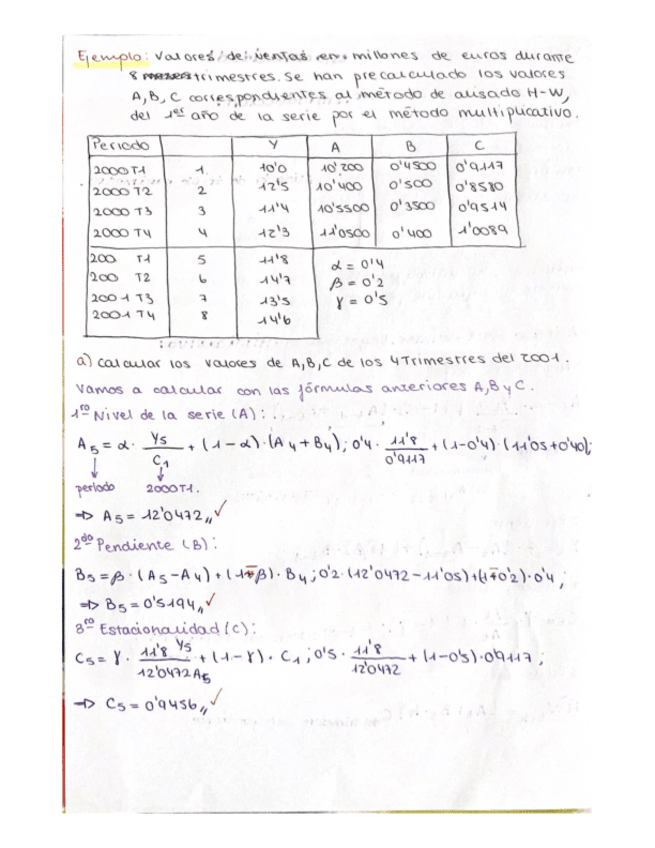 Ejemplo: Valores de ventas en millones de euros durante
8 trimestres. Se han precalculado los valores
A, B, C correspondientes al método de alisado H-W,
del 1er año de la serie por el método multiplicativo.
Periodo Y A B C
2000 T1 1 10'0 10'200 0'4500 0'9117
2000 T2 2 12'5 10'400 0'500 0'8580
2000 T3 3 11'4 10'5500 0'3500 0'9514
2000 T4 4 12'3 11'0500 0'400 1'0089
200 T1 5 11'8 α = 0'4
200 T2 6 14'7 β = 0'2
2001 T3 7 13'5 γ = 0'5
2001 T4 8 14'6
a) Calcular los valores de A, B, C de los 4 Trimestres del 2001.
Vamos a calcular con las fórmulas anteriores A, B y C.
1ro Nivel de la serie (A):
A5 = α · Y5/C1 + (1-α)·(A4 + B4); 0'4 · 11'8/0'9117 + (1-0'4)·(11'05+0'40);
periodo 2000T1.
⇒ A5 = 12'0472,, ✓
2do Pendiente (B):
B5 = β · (A5 - A4) + (1-β) · B4; 0'2 · (12'0472 - 11'05) + (1-0'2) · 0'4;
⇒ B5 = 0'5194,, ✓
3ro Estacionalidad (C):
C5 = γ · 11'8 Y5/12'0472 A5 + (1-γ) · C1; 0'5 · 11'8/12'0472 + (1-0'5) · 0'9117;
⇒ C5 = 0'9456,, ✓